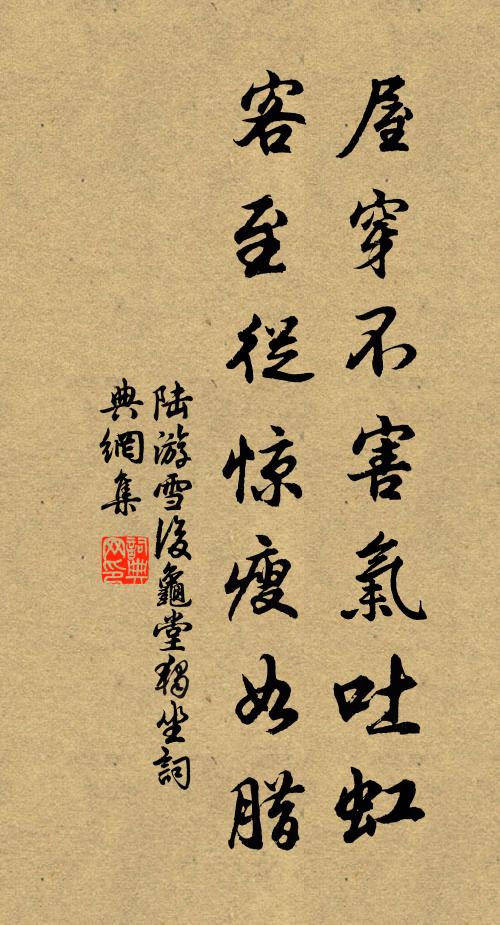 屋穿不害氣吐虹
客至從惊瘦如腊
陆游雪後龜堂獨坐詞
典網集
詞典网印